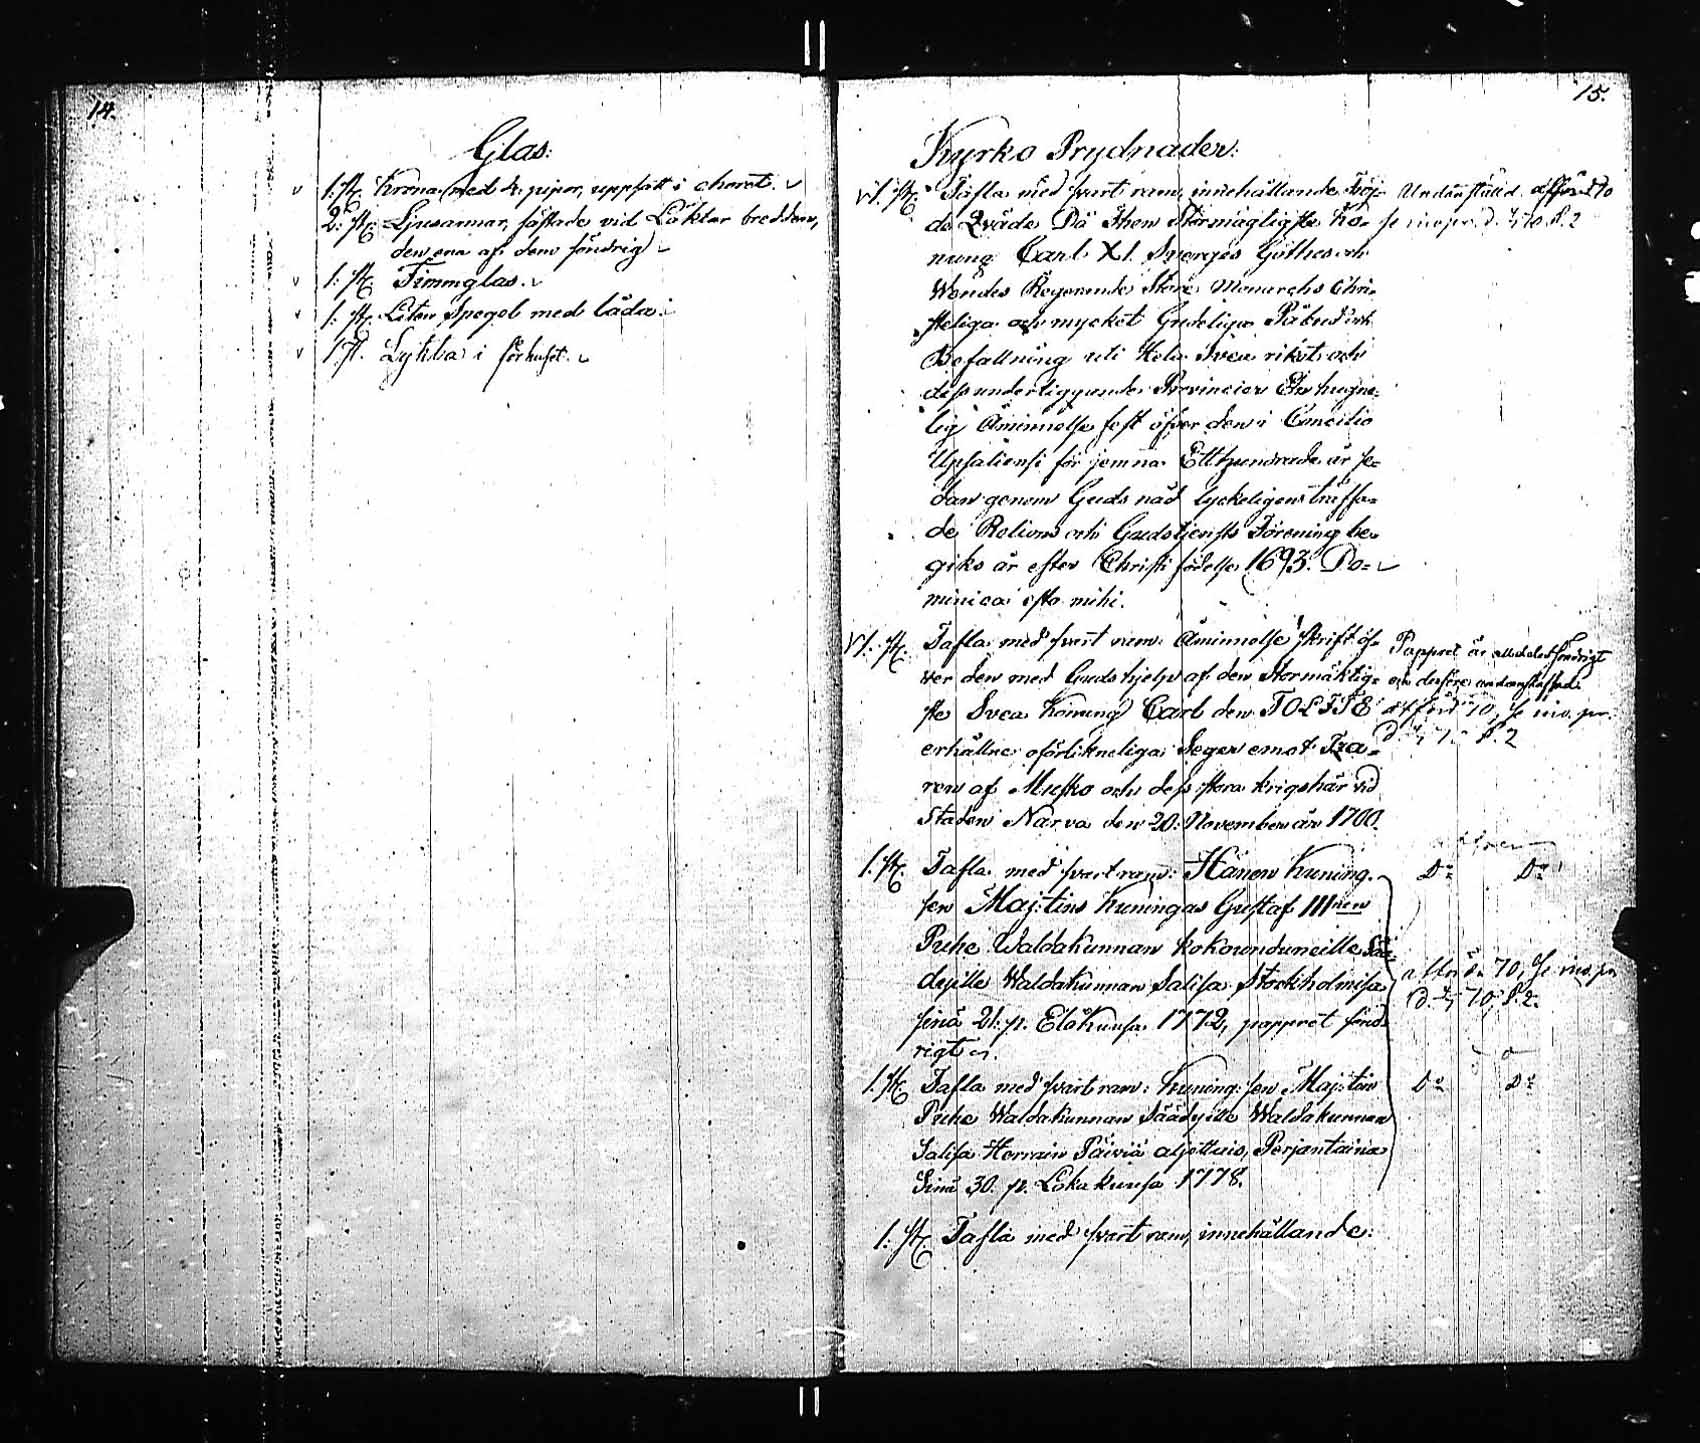 14.
Glas:
1. st. Krona med 4. pipor, uppsatt i choret.
2. st. Ljusarmar, fästade vid Läktar bredden,
den ena af dem söndrig
1. st. Timmglas.
1. st. Liten Spegel med låda
1. st. Lykta i förhuset.
15.
Kyrko Prydnader:
1. st. Tafla med svart ram, innehållande Frög-
de Qväde Då Then Stormägligste Ko-
nung Carl XI. Sverges Göthes och
Wendes Regerande Store Monarchs Chri-
steliga och mycket Gudeliga Påbud och
Befallning uti Hela Svea riket och
dess underliggande Provincier En hugne-
lig Åminnelse fest öfver den i Concilio
Upsaliensi för jemna Etthundrade år se-
dan genom Guds nåd lyckeligen träffa-
de Relions och Gudstjensts Förening be-
giks år efter Christi födelse 1693. Do-
minica esto mihi.
Undanstäld afförd 70
se inv. pr. d. 70 §. 2
1. st. Tafla med svart ram: Åminnelse skrift öf-
ver den med Guds hjelp af den Stormäktig-
ste Svea Konung Carl den TOLFTE
erhållne oförlikneliga Seger emot Tza-
ren af Musko och dess stora krigshär vid
Staden Narva den 20. November år 1700.
Pappret är alldeles söndrigt
och derföre undanskaffad
afförd 70, se inv. pr.
§. 2
1. st. Tafla med svart ram: Hänen Kuning.
sen Maj:tins Kuningas Gustaf III:nen
Puhe Waldakunnan kokounduneille Sää-
dyille Waldakunnan Salissa Stockholmissa
sinä 21. p. Elokuussa 1772, pappret sönd-
rigt.
Do Do
afförda 70, se inv. pr
d. 70, §. 2.
1. st. Tafla med svart ram: Kuning:sen Maj:tin
Puhe Waldakunnan Säädyille Waldakunnan
Salissa Herrain Päiviä aljettuis, Perjantaina
Sinä 30. p. Lokakuussa 1778.
Do Do
1. st. Tafla med svart ram, innehållande: